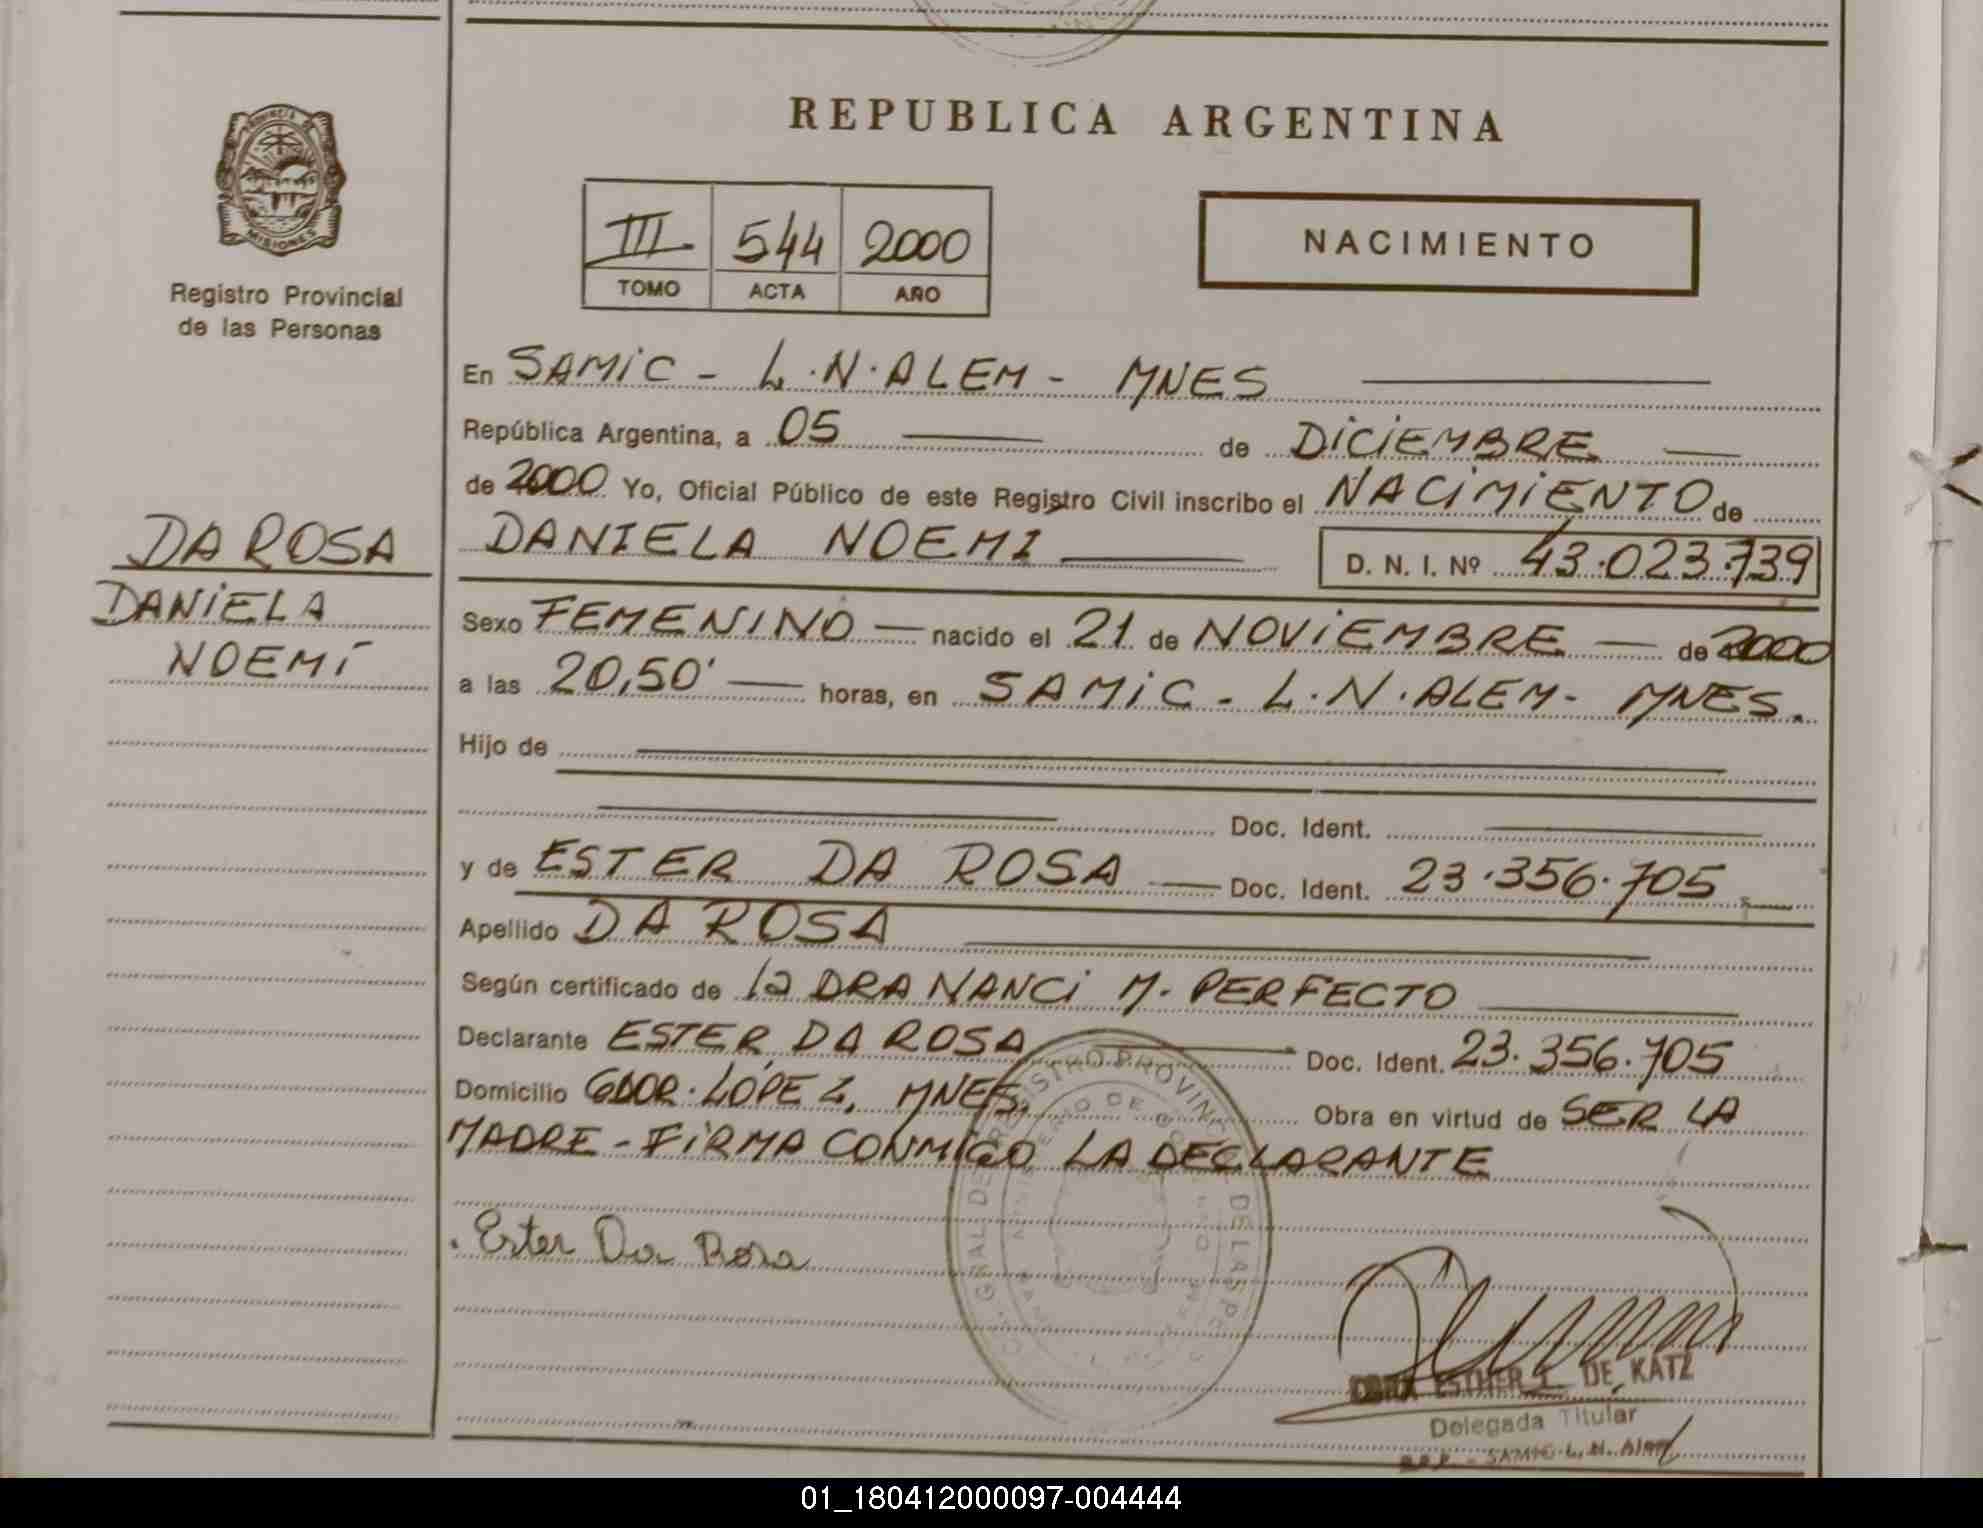 PROVINCIA DE
MISIONES
Registro Provincial
de las Personas
REPUBLICA ARGENTINA
III 544 2000
TOMO ACTA AÑO
NACIMIENTO
En SAMiC - L.N.ALEM - MNES
República Argentina, a 05 de DiCiEMBRE
de 2000 Yo, Oficial Público de este Registro Civil inscribo el NACiMiENTO de
DANIELA NOEMI D. N. I. Nº 43.023.739
DA ROSA
DANiELA
NOEMÍ
Sexo FEMENINO nacido el 21 de NOViEMBRE de 2000
a las 20,50' horas, en SAMiC - L.N.ALEM - MNES.
Hijo de
Doc. Ident.
y de ESTER DA ROSA Doc. Ident. 23.356.705
Apellido DA ROSA
Según certificado de la DRA NANCi M. PERFECTO
Declarante ESTER DA ROSA Doc. Ident. 23.356.705
Domicilio GDOR. LÓPEZ, MNES. Obra en virtud de SER LA
MADRE - FiRMA CONMIGO LA DECLARANTE
Ester Da Rosa
ESTHER DE KATZ
Delegada Titular
SAMIC L.N. Alem
01_180412000097-004444